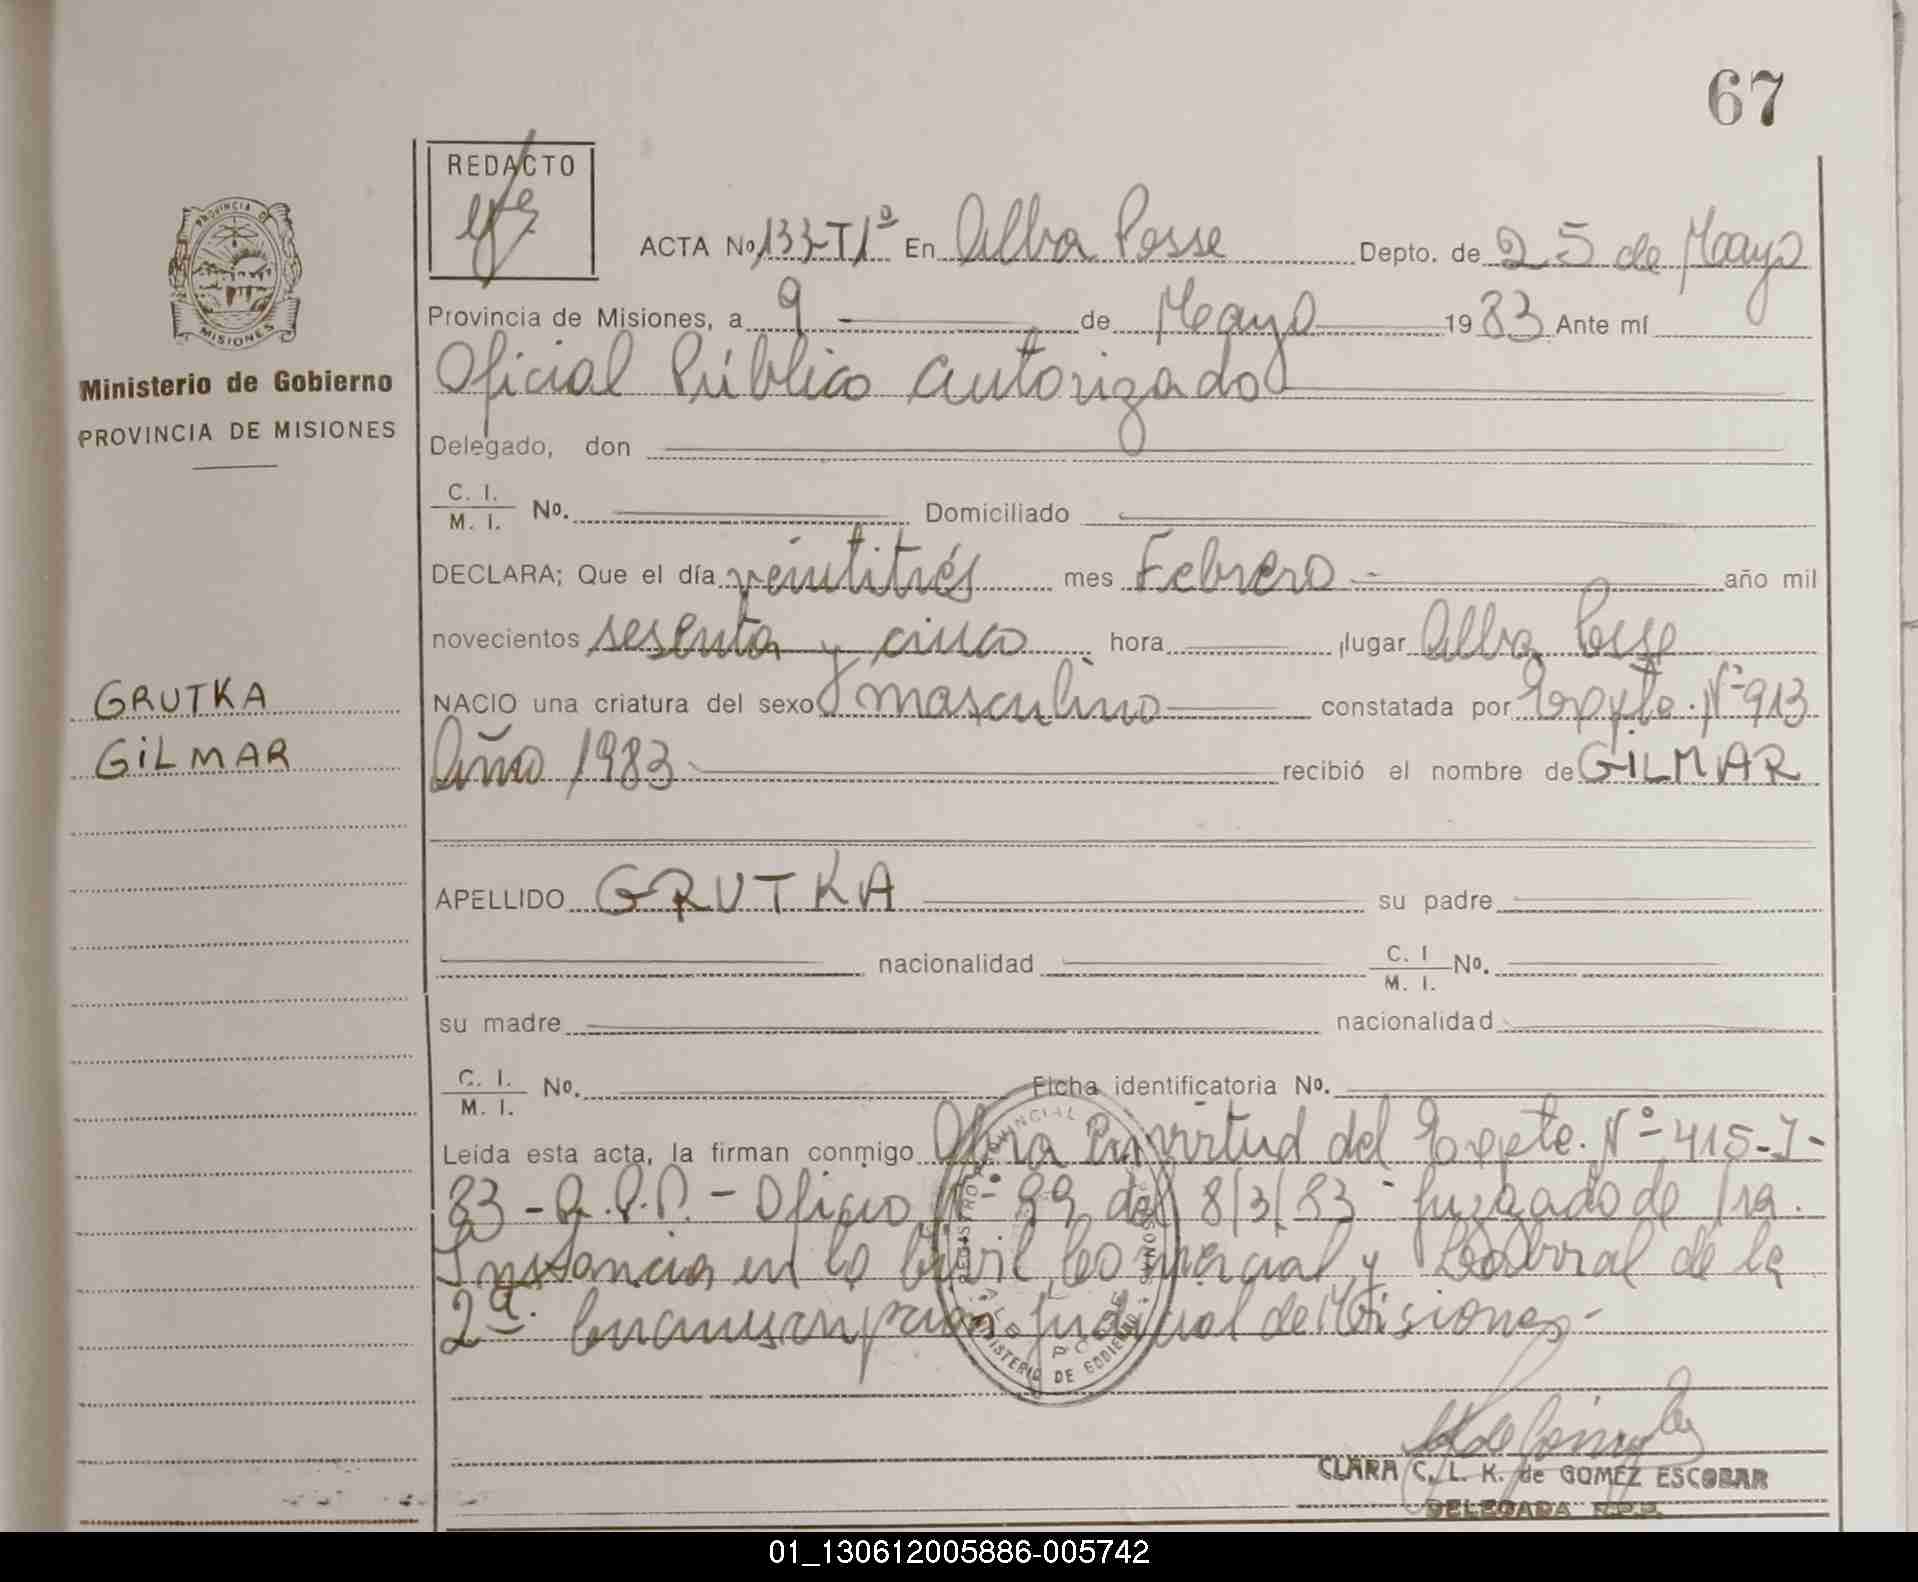 67
REDACTO
ACTA No 133-T1º En Alba Posse Depto. de 25 de Mayo
PROVINCIA DE
MISIONES
Provincia de Misiones, a 9 de Mayo 1983 Ante mí
Ministerio de Gobierno
Oficial Público autorizado
PROVINCIA DE MISIONES
Delegado, don
C. I.
M. I. No. Domiciliado
DECLARA; Que el día veintitrés mes Febrero año mil
novecientos sesenta y cinco hora lugar Alba Posse
GRUTKA
NACIO una criatura del sexo masculino constatada por Expte. Nº 913
GiLMAR
Año 1983 recibió el nombre de GiLMAR
APELLIDO GRUTKA su padre
nacionalidad C. I
M. I. No.
su madre nacionalidad
C. I.
M. I. No. Ficha identificatoria No.
Leída esta acta, la firman conmigo Obra en virtud del Expte. Nº 415-J-
83-R.P.P.- Oficio Nº 99 del 8/3/83 - Juzgado de 1ra.
Instancia en lo Civil, Comercial y Laboral de la
2ª. Circunscripción Judicial de Misiones-
CLARA C. L. K. de GOMEZ ESCOBAR
DELEGADA R.P.P.
01_130612005886-005742